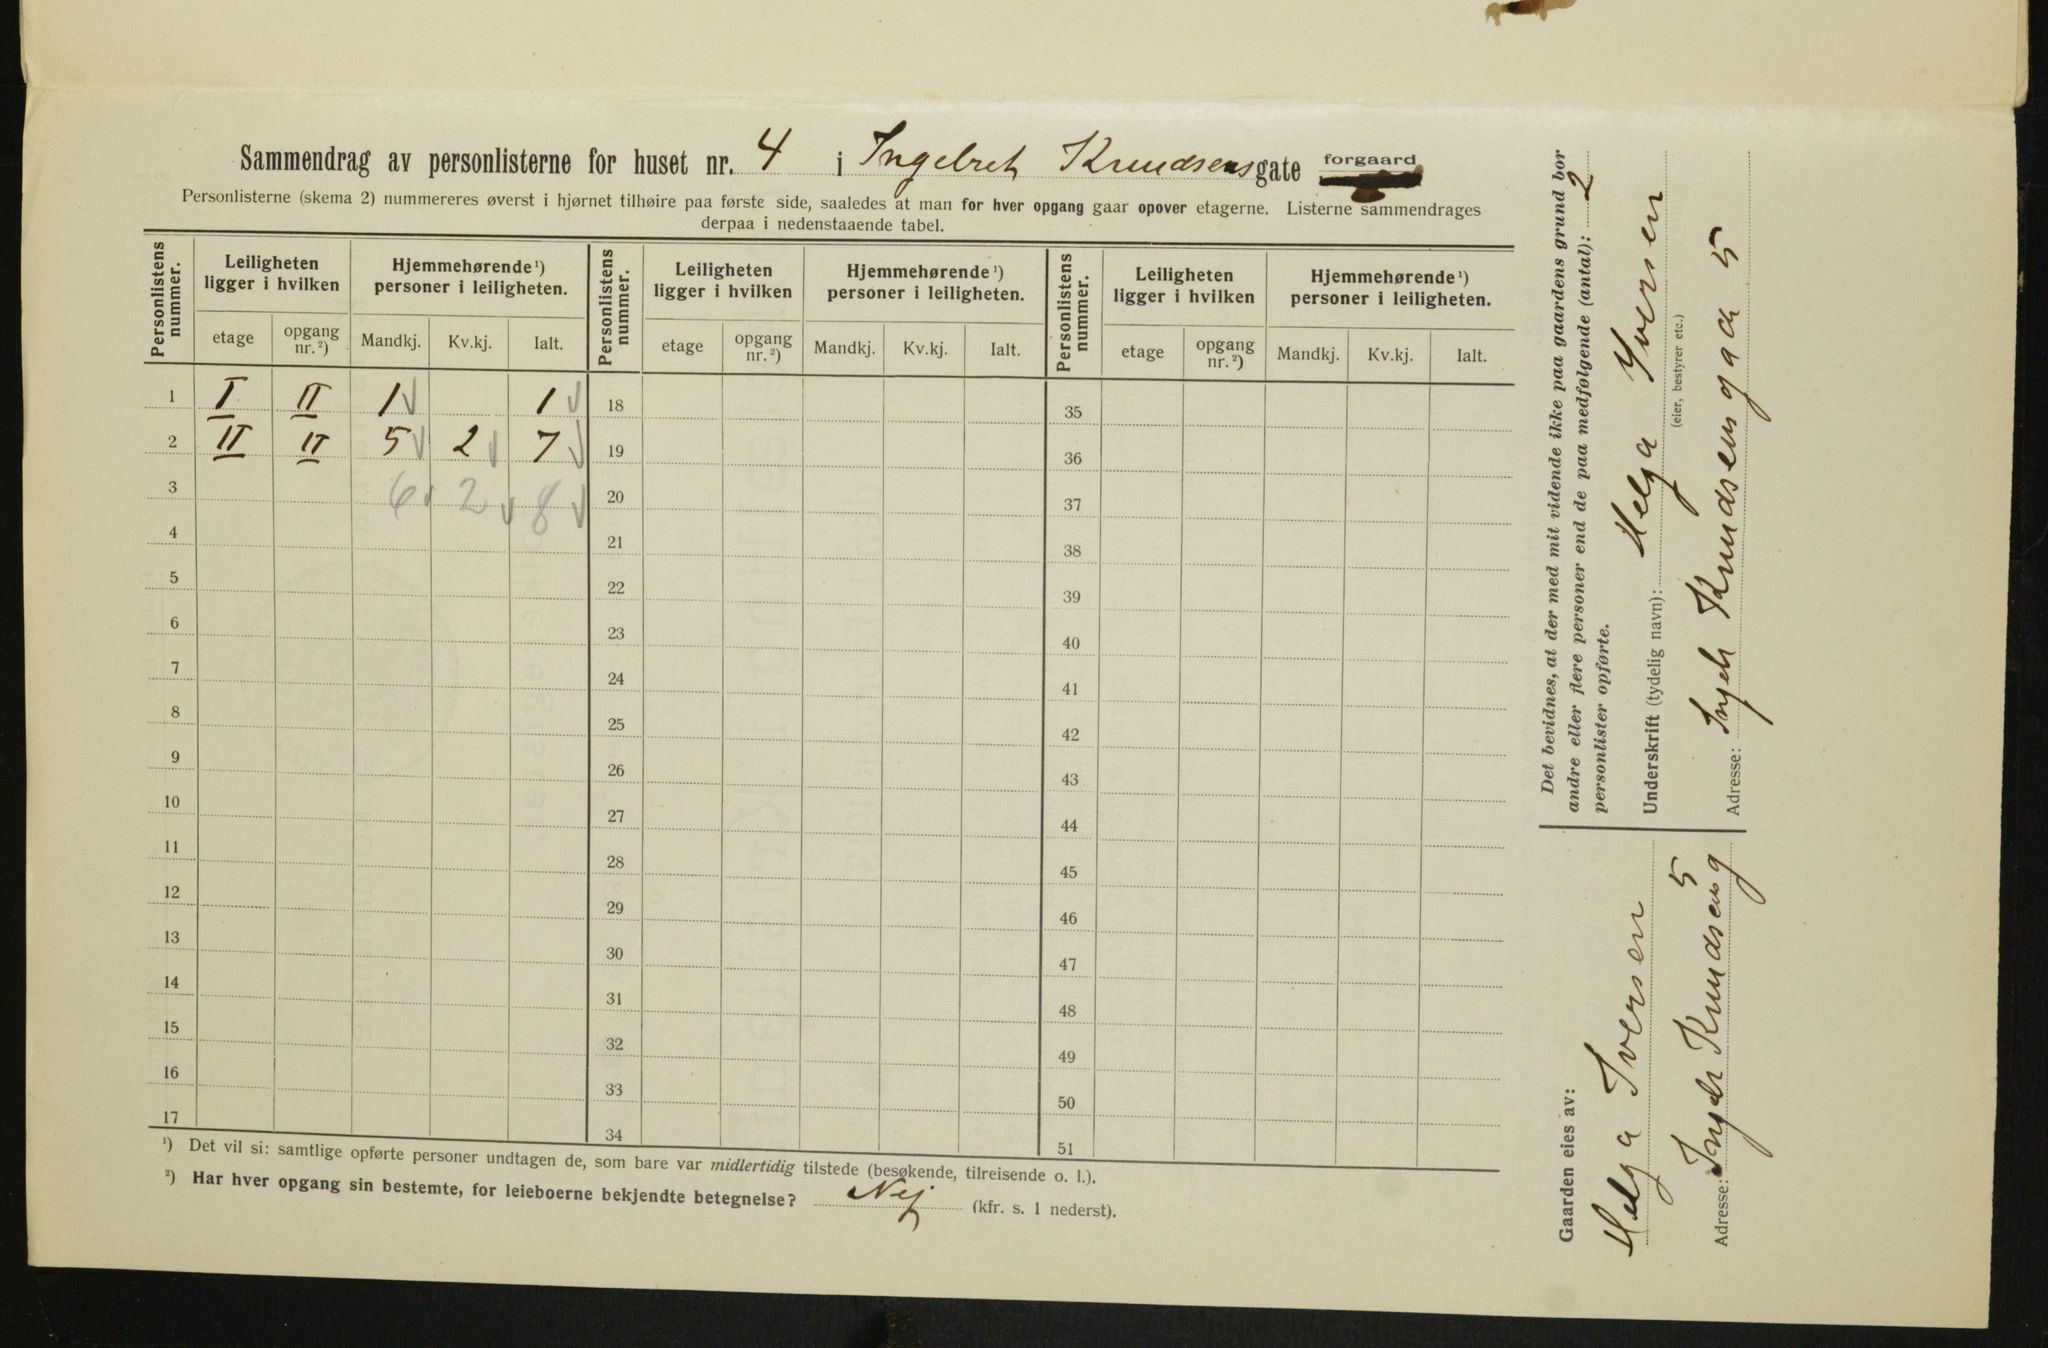 Sammendrag av personlisterne for huset nr. 4 i Ingebret Knudsens gate forgaard
Personlisterne (skema 2) nummereres øverst i hjørnet tilhøire paa første side, saaledes at man for hver opgang gaar opover etagerne. Listerne sammendrages
derpaa i nedenstaaende tabel.
Personlistens nummer. Leiligheten ligger i hvilken Hjemmehørende ¹) personer i leiligheten. Personlistens nummer. Leiligheten ligger i hvilken Hjemmehørende ¹) personer i leiligheten. Personlistens nummer. Leiligheten ligger i hvilken Hjemmehørende ¹) personer i leiligheten.
etage opgang nr. ²) Mandkj. Kv.kj. Ialt. etage opgang nr. ²) Mandkj. Kv.kj. Ialt. etage opgang nr. ²) Mandkj. Kv.kj. Ialt.
1 I II 1 1 18 35
2 II II 5 2 7 19 36
3 6 2 8 20 37
4 21 38
5 22 39
6 23 40
7 24 41
8 25 42
9 26 43
10 27 44
11 28 45
12 29 46
13 30 47
14 31 48
15 32 49
16 33 50
17 34 51
¹) Det vil si: samtlige opførte personer undtagen de, som bare var midlertidig tilstede (besøkende, tilreisende o. l.).
²) Har hver opgang sin bestemte, for leieboerne bekjendte betegnelse? Nej (kfr. s. 1 nederst).
Det bevidnes, at der med mit vidende ikke paa gaardens grund bor
andre eller flere personer end de paa medfølgende (antal): 2
personlister opførte.
Underskrift (tydelig navn): Helga Iversen
(eier, bestyrer etc.)
Adresse: Ingebr Knudsensgade 5
Gaarden eies av:
Helga Iversen
Adresse: Ingebr Knudsensg 5